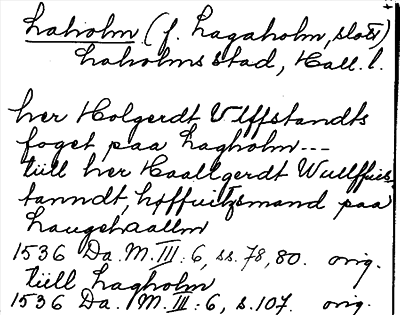 Laholm (f. Lagaholm, slott)
Laholms stad, Hall. l.
her Holgerdt Vlffstandts
foget paa Lagholm ---
tiill her Haallgerdt Wullffuis-
tanndt, høffuitzmand paa
Laugehaallm
1536 Da. M. III: 6, ss. 78, 80. orig.
tiill Lagholm
1536 Da. M. III: 6, s. 107. orig.